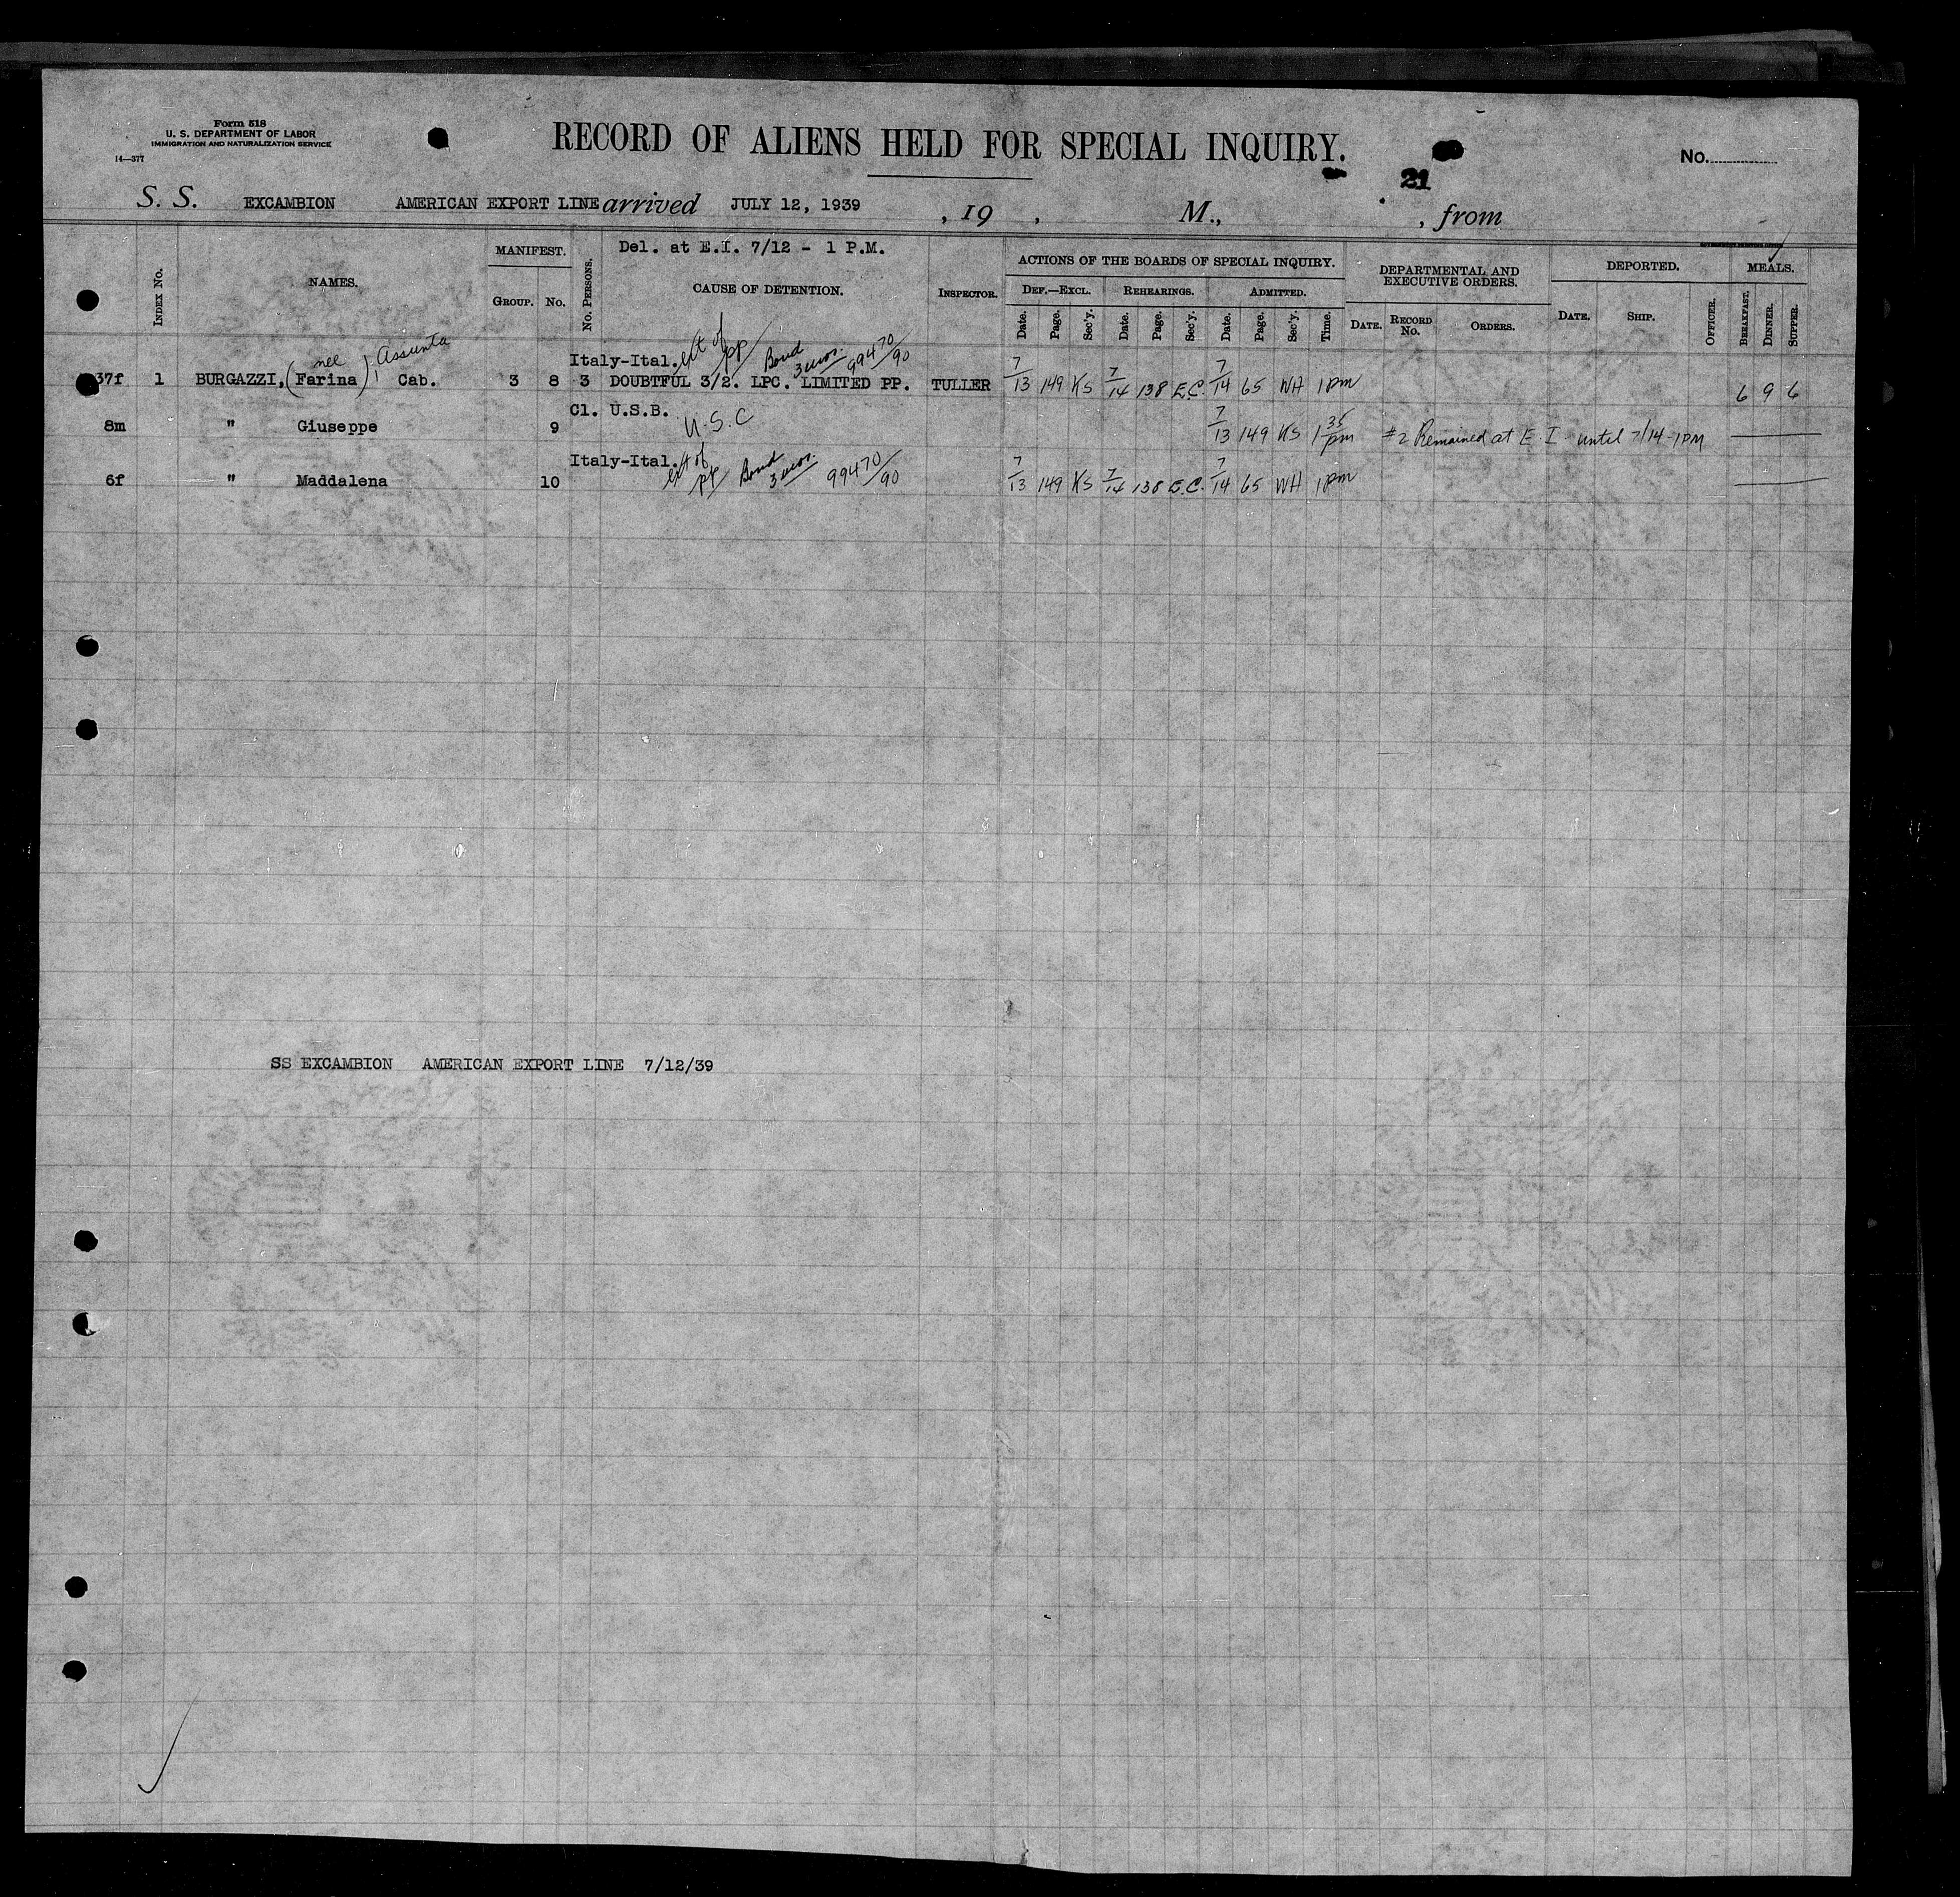 Form 518
U. S. DEPARTMENT OF LABOR
IMMIGRATION AND NATURALIZATION SERVICE
14—377
RECORD OF ALIENS HELD FOR SPECIAL INQUIRY.
No.
21
S. S. EXCAMBION AMERICAN EXPORT LINE arrived JULY 12, 1939 , 19 , M., , from
Del. at E.I. 7/12 - 1 P.M.
INDEX No. NAMES. MANIFEST. GROUP. No. No. PERSONS. CAUSE OF DETENTION. INSPECTOR.
ACTIONS OF THE BOARDS OF SPECIAL INQUIRY.
DEF.—EXCL. Date. Page. Sec'y. REHEARINGS. Date. Page. Sec'y. ADMITTED. Date. Page. Sec'y. Time.
DEPARTMENTAL AND EXECUTIVE ORDERS. DATE. RECORD No. ORDERS.
DEPORTED. DATE. SHIP. OFFICER.
MEALS. BREAKFAST. DINNER. SUPPER.
nee Assunta Italy-Ital. ext of pp Bond 3 mos. 99470/90
37f 1 BURGAZZI, (Farina) Cab. 3 8 3 DOUBTFUL 3/2. LPC. LIMITED PP. TULLER 7/13 149 KS 7/14 138 E.C. 7/14 65 WH 1 PM 6 9 6
Cl. U.S.B. U.S.C
8m " Giuseppe 9 7/13 149 KS 1 35 pm #2 Remained at E.I. until 7/14-1PM
Italy-Ital. ext of pp Bond 3 mos. 99470/90
6f " Maddalena 10 7/13 149 KS 7/14 138 E.C. 7/14 65 WH 1 PM
SS EXCAMBION AMERICAN EXPORT LINE 7/12/39